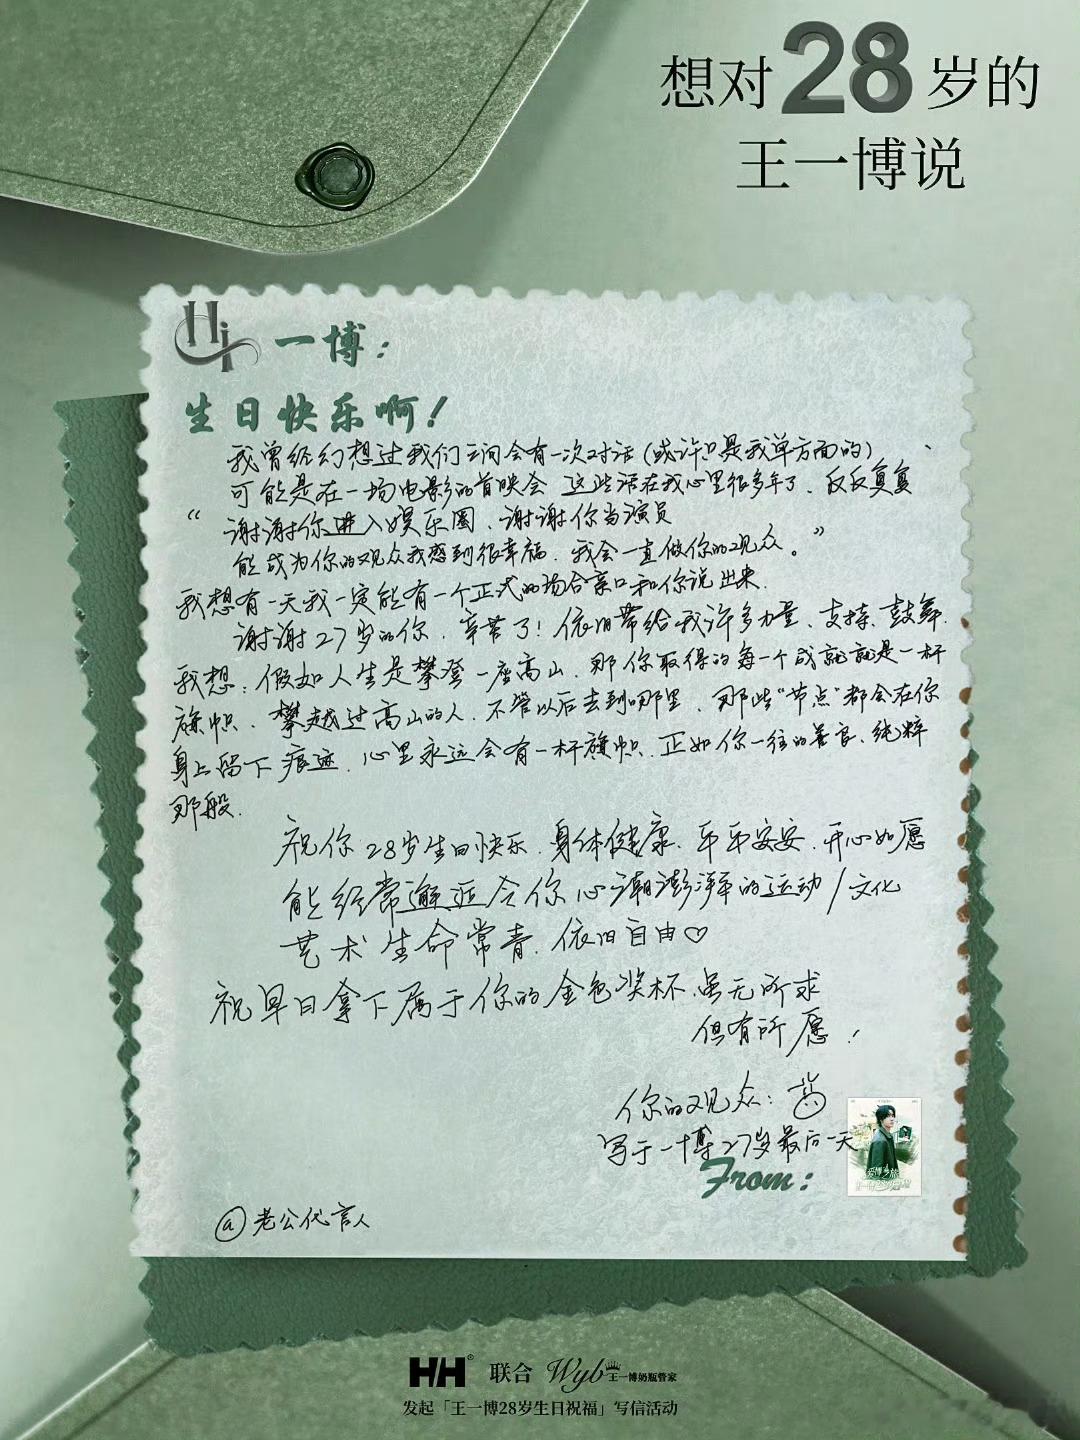 想对28岁的
王一博说
Hi 一博：
生日快乐啊！
我曾经幻想过我们之间会有一次对话（或许只是我单方面的）
可能是在一场电影的首映会 这些话在我心里很多年了、反反复复
“谢谢你进入娱乐圈、谢谢你当演员
能成为你的观众我感到很幸福、我会一直做你的观众。”
我想有一天我一定能有一个正式的场合亲口和你说出来.
谢谢27岁的你、辛苦了！依旧带给我许多力量、支持、鼓舞.
我想：假如人生是攀登一座高山、那你取得的每一个成就就是一杆
旗帜、攀越过高山的人、不管以后去到哪里、那些“节点”都会在你
身上留下痕迹、心里永远会有一杆旗帜、正如你一往的善良、纯粹
那般.
祝你28岁生日快乐、身体健康、平平安安、开心如愿
能经常邂逅令你心潮澎湃的运动/文化
艺术生命常青、依旧自由♡
祝早日拿下属于你的金色奖杯、虽无所求
但有所愿.
你的观众：
写于一博27岁最后一天
From:
@老公代言人
爱博之旅
HH® 联合 Wyb 王一博奶瓶管家
发起「王一博28岁生日祝福」写信活动